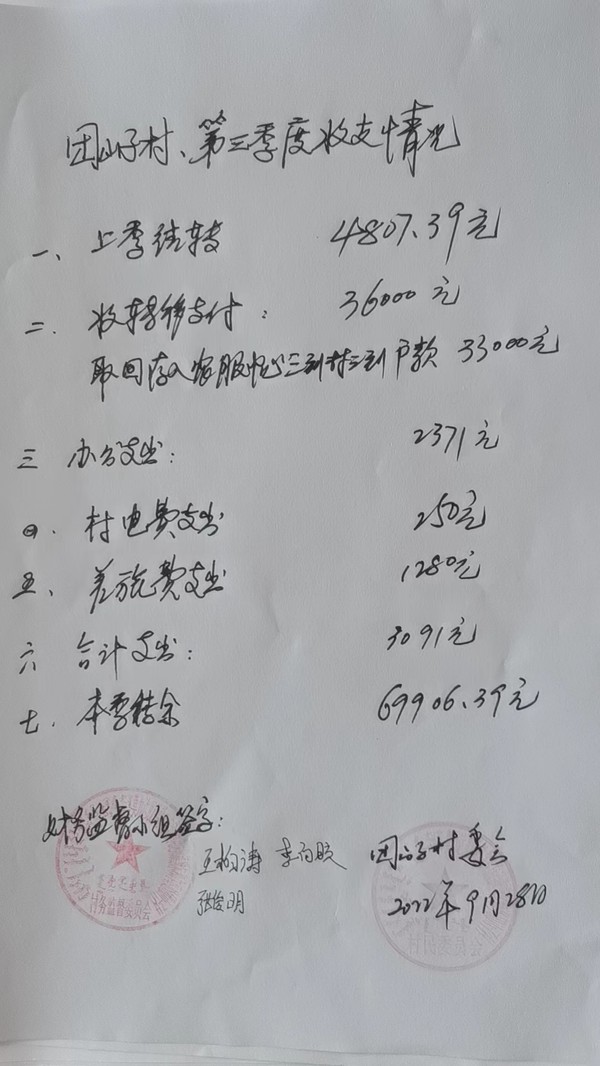 团山子村、第三季度收支情况
一、上季结转 4807.39元
二、收转移支付： 36000元
取回存入农服中心三到村三到户款 33000元
三 办公支出： 2371元
四、村电费支出 250元
五、差旅费支出 1280元
六 合计支出： 3091元
七、本季结余 69906.39元
财务监督小组签字：
团山子村委会
张俊明
2022年9月28日
村务监督委员会